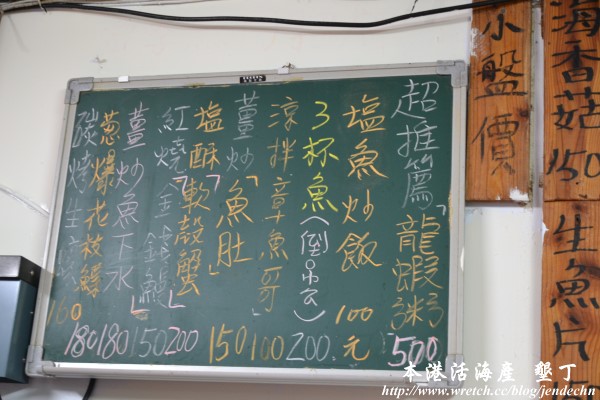 超推篇
「龍蝦粥」500
塩魚炒飯 100元
3杯魚(倒吊) 200
涼拌章魚哥 100
薑炒「魚肚」 150
塩酥「軟殼蟹」 200
紅燒「金錢鰻」 150
薑炒魚下水 180
蔥爆花枝鰾 180
碳燒生蠔 160
小盤價
海香菇 150
生魚片
本港活海產 墾丁
http://www.wretch.cc/blog/jendechn